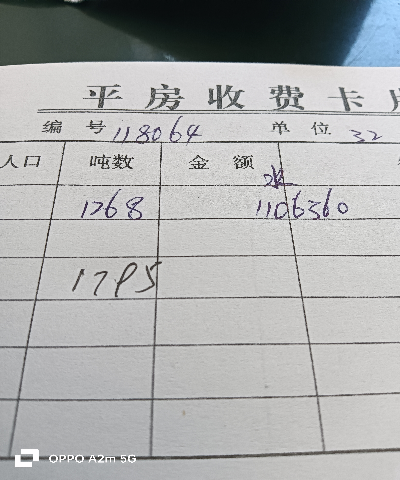 平房收费卡
编号 118064 单位 32
人口 吨数 金额
水
1268 1106360
1795
OPPO A2m 5G